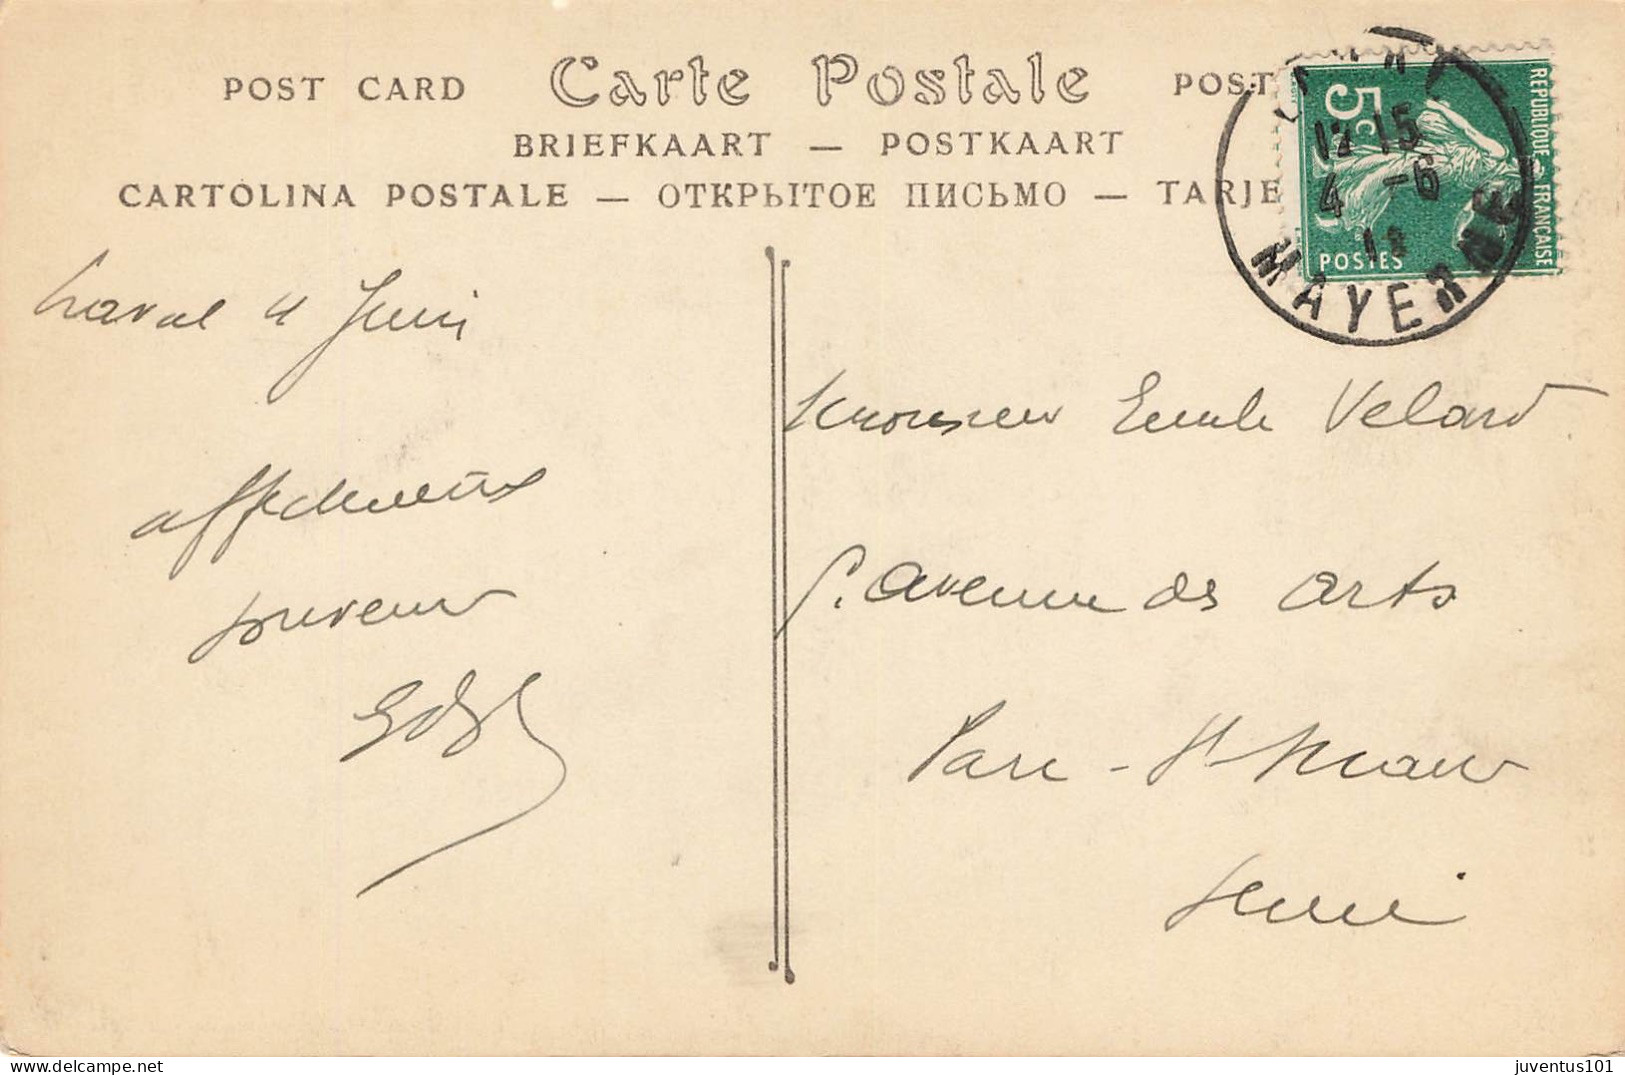 POST CARD Carte Postale POST
BRIEFKAART — POSTKAART
CARTOLINA POSTALE — ОТКРЫТОЕ ПИСЬМО — TARJE
5c
REPUBLIQUE FRANÇAISE
POSTES
12 15
4 -6
MAYENNE
Laval 4 Juin
affectueux
souvenir
Monsieur Emile Velard
avenue des Arts
Parc - St-Maur
Seine
juventus101